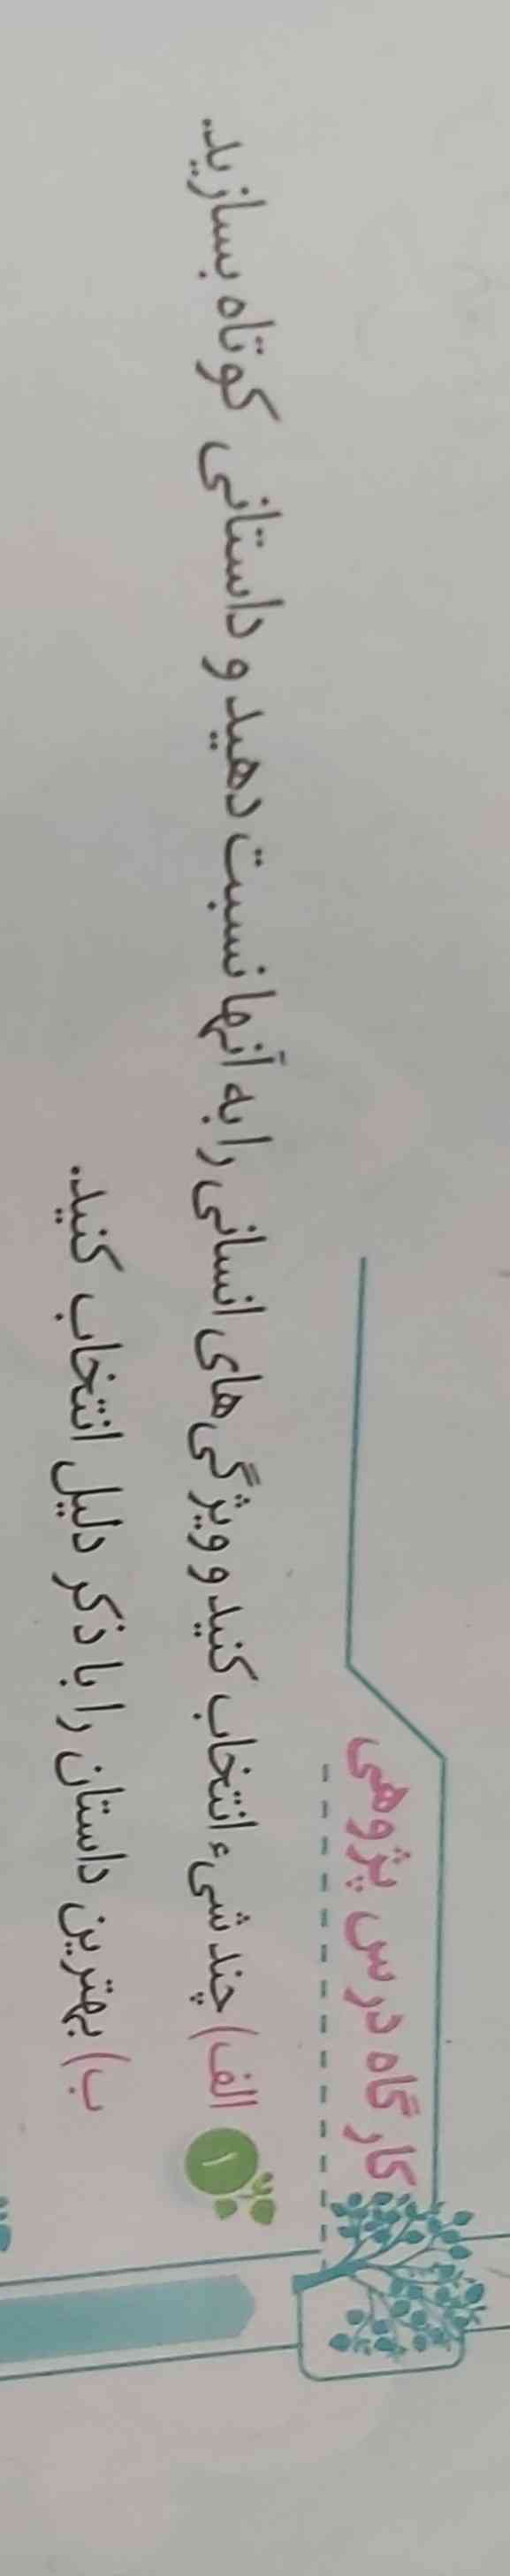 کارگاه درس پژوهی
۱ الف) چند شیء انتخاب کنید و ویژگی‌های انسانی را به آنها نسبت دهید و داستانی کوتاه بسازید.
ب) بهترین داستان را با ذکر دلیل انتخاب کنید.